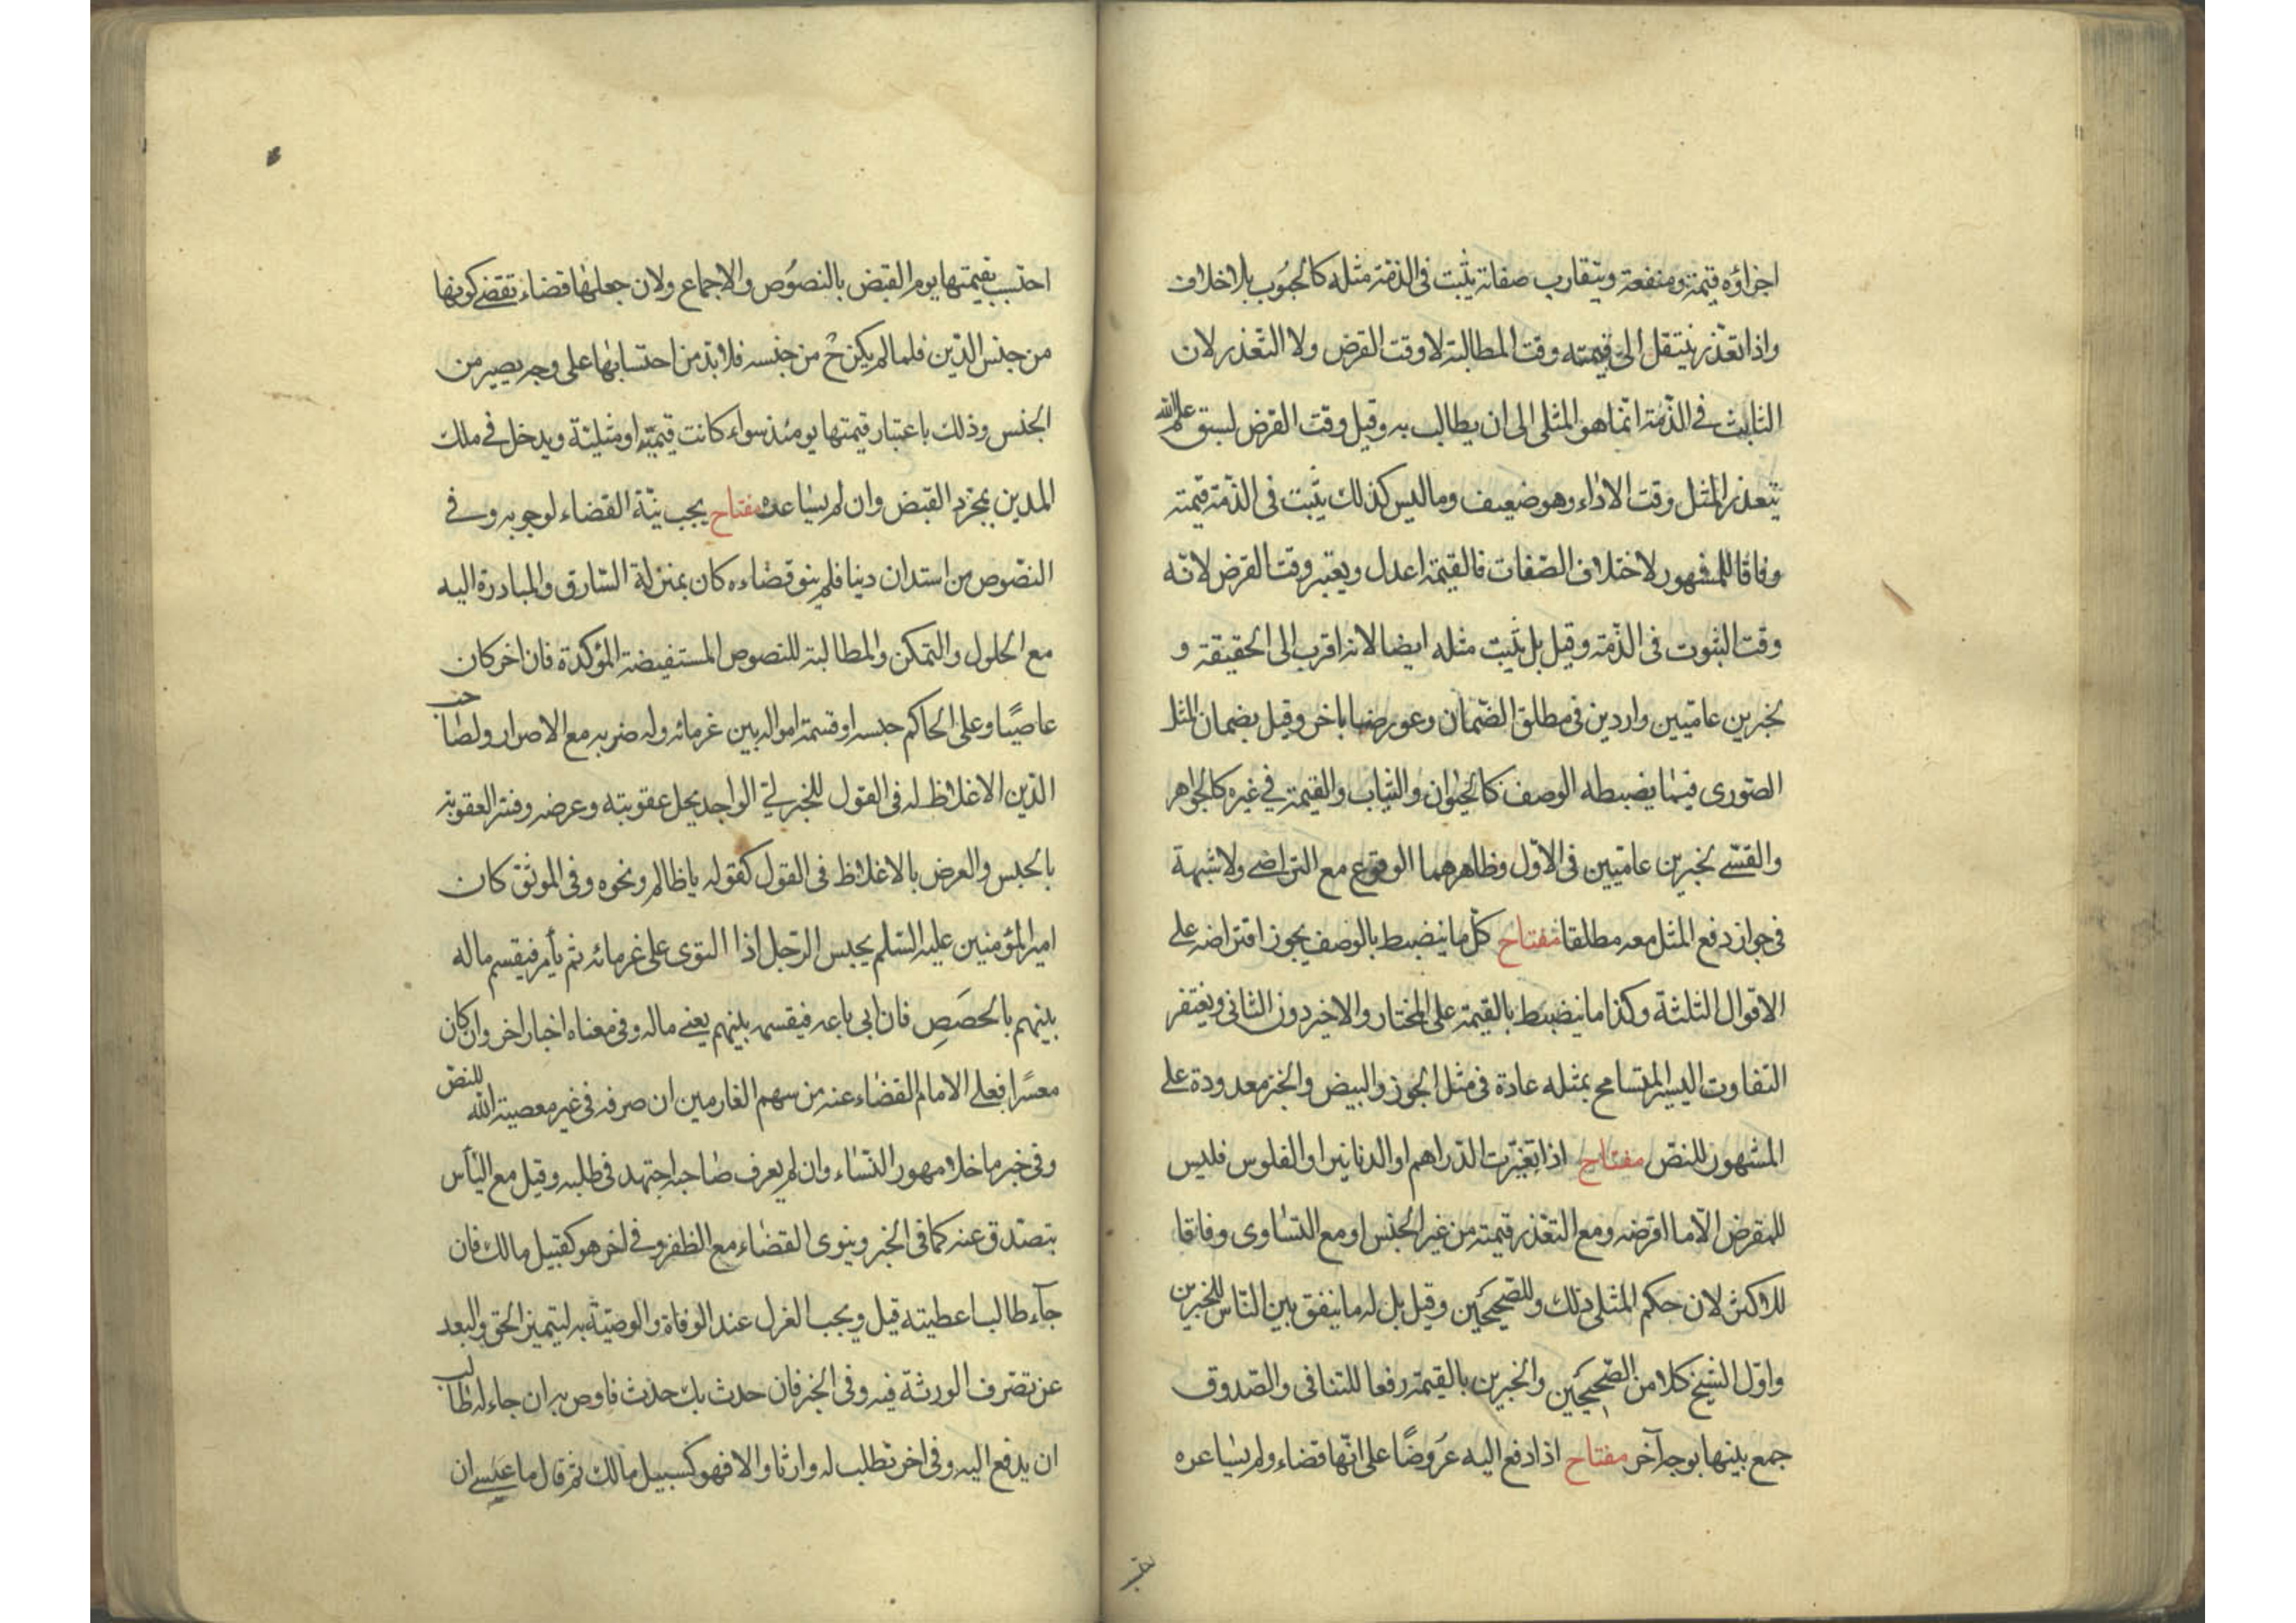 اجزاؤه قيمة ومنفعة ويتقارب صفاته يثبت في الذمة مثله كالحبوب بلا خلاف
واذا تعذر ينتقل الى قيمته وقت المطالبة لا وقت القرض ولا التعذر لان
الثابت في الذمة انما هو المثلى الى ان يطالب به وقيل وقت القرض لسبق علم الله
بتعذر المثل وقت الاداء وهو ضعيف وما ليس كذلك يثبت في الذمة قيمته
وفاقا للمشهور لاختلاف الصفات فالقيمة اعدل ويعتبر وقت القرض لانه
وقت الثبوت في الذمة وقيل بل يثبت مثله ايضا لانه اقرب الى الحقيقة و
لخبرين عاميين واردين في مطلق الضمان وعورضا باخر وقيل بضمان المثل
الصورى فيما يضبطه الوصف كالحيوان والثياب والقيمة في غيره كالجواهر
والقسى لخبرين عاميين في الاول وظاهرهما الوقوع مع التراضي ولا شبهة
في جواز دفع المثل معه مطلقا مفتاح كل ما ينضبط بالوصف يجوز اقتراضه على
الاقوال الثلثة وكذا ما ينضبط بالقيمة على المختار والاخير دون الثاني ويغتفر
التفاوت اليسير المتسامح بمثله عادة في مثل الجوز والبيض والخبز معدودة على
المشهور للنص مفتاح اذا تغيرت الدراهم او الدنانير او الفلوس فليس
للمقرض الا ما اقرضه ومع التعذر قيمته من غير الجنس او مع التساوى وفاقا
للاكثر لان حكم المثلى ذلك وللصحيحين وقيل بل له ما ينفق بين الناس للخبرين
واول الشيخ كلا من الصحيحين والخبرين بالقيمة رفعا للتنافى والصدوق
جمع بينها بوجه آخر مفتاح اذا دفع اليه عروضا على انها قضاء ولم يساعره
احتسب بقيمتها يوم القبض بالنصوص والاجماع ولان جعلها قضاء تقتضى كونها
من جنس الدين فلما لم يكن ح من جنسه فلا بد من احتسابها على وجه يصير من
الجنس وذلك باعتبار قيمتها يومئذ سواء كانت قيمية او مثلية ويدخل في ملك
المدين بمجرد القبض وان لم يساعره مفتاح يجب نية القضاء لوجوبه وفي
النصوص من استدان دينا فلم ينو قضاءه كان بمنزلة السارق والمبادرة اليه
مع الحلول والتمكن والمطالبة للنصوص المستفيضة المؤكدة فان اخر كان
عاصيا وعلى الحاكم حبسه او قسمة امواله بين غرمائه وله ضربه مع الاصرار ولصاحب
الدين الاغلاظ له في القول للخبر لى الواجد يحل عقوبته وعرضه وفسر العقوبة
بالحبس والعرض بالاغلاظ في القول كقوله يا ظالم ونحوه وفي الموثق كان
امير المؤمنين عليه السلم يحبس الرجل اذا التوى على غرمائه ثم يأمر فيقسم ماله
بينهم بالحصص فان ابى باعه فيقسمه بينهم يعنى ماله وفي معناه اخبار اخر وان كان
معسرا فعلى الامام القضاء عنه من سهم الغارمين ان صرفه في غير معصية الله للنص
وفي خبر ما خلا مهور النساء وان لم يعرف صاحبه اجتهد في طلبه وقيل مع اليأس
يتصدق عنه كما في الخبر وينوى القضاء مع الظفر وفي اخر هو كسبيل مالك فان
جآء طالبا عطيته قيل ويجب العزل عند الوفاة والوصية به ليتميز الحق والبعد
عن تصرف الورثة فيه وفي الخبر فان حدث بك حدث فاوص به ان جاء له طالب
ان يدفع اليه وفي اخر تطلب له وارثا والا فهو كسبيل مالك ثم قال ما عسى ان